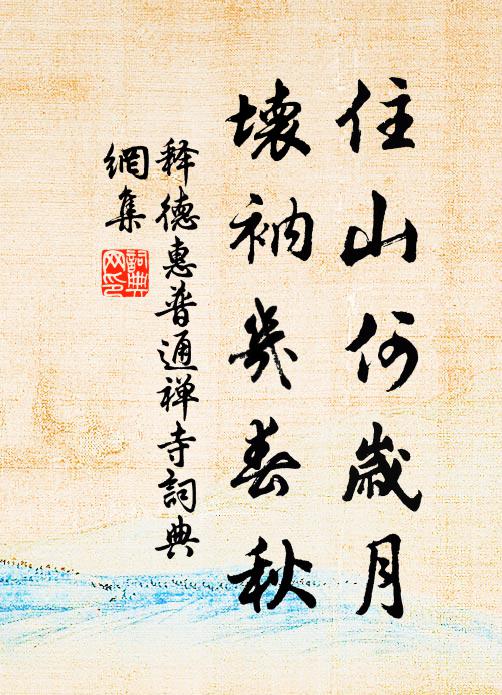 住山何歲月
壞衲幾春秋
释德惠普通禅寺詞典
網集
詞典
网印